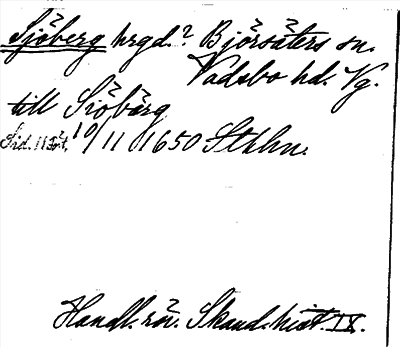 Sjöberg hrgd.? Björsäters sn.
Vadsbo hd. Vg.
till Siöbärg
10/11 1650 Sthlm.
Handl. rör. Skand. hist. IX.